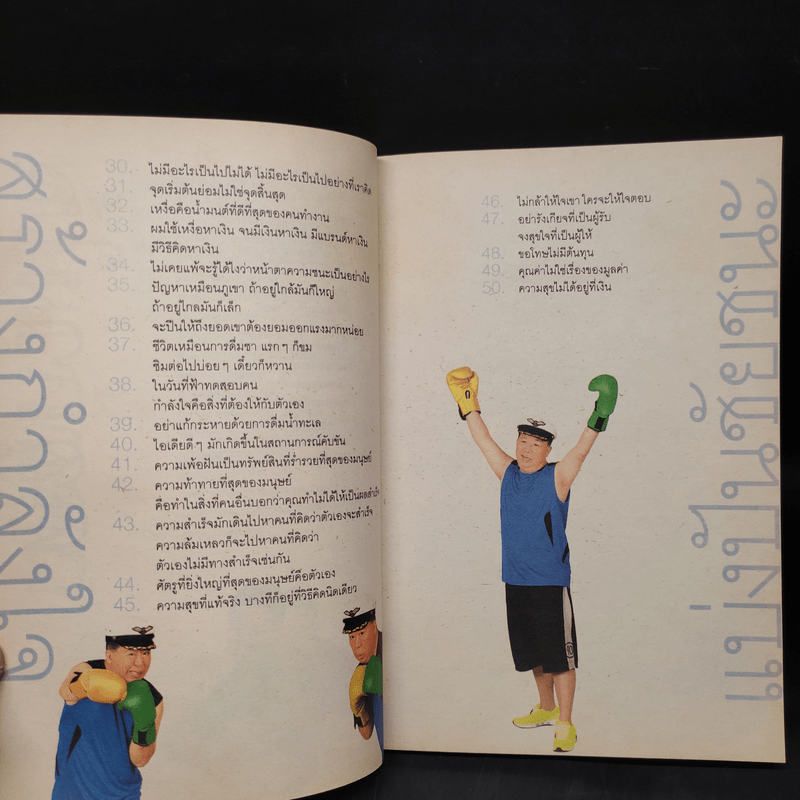 สร้างกำลังใจ
30. ไม่มีอะไรเป็นไปไม่ได้ ไม่มีอะไรเป็นไปอย่างที่เราคิด
31. จุดเริ่มต้นย่อมไม่ใช่จุดสิ้นสุด
32. เหงื่อคือน้ำมนต์ที่ดีที่สุดของคนทำงาน
33. ผมใช้เหงื่อหาเงิน จนมีเงินหาเงิน มีแบรนด์หาเงิน
มีวิธีคิดหาเงิน
34. ไม่เคยแพ้จะรู้ได้ไงว่าหน้าตาความชนะเป็นอย่างไร
35. ปัญหาเหมือนภูเขา ถ้าอยู่ใกล้มันก็ใหญ่
ถ้าอยู่ไกลมันก็เล็ก
36. จะปีนให้ถึงยอดเขาต้องยอมออกแรงมากหน่อย
37. ชีวิตเหมือนการดื่มชา แรกๆ ก็ขม
ชิมต่อไปบ่อยๆ เดี๋ยวก็หวาน
38. ในวันที่ฟ้าทดสอบคน
กำลังใจคือสิ่งที่ต้องให้กับตัวเอง
39. อย่าแก้กระหายด้วยการดื่มน้ำทะเล
40. ไอเดียดีๆ มักเกิดขึ้นในสถานการณ์คับขัน
41. ความเพ้อฝันเป็นทรัพย์สินที่ร่ำรวยที่สุดของมนุษย์
42. ความท้าทายที่สุดของมนุษย์
คือทำในสิ่งที่คนอื่นบอกว่าคุณทำไม่ได้ให้เป็นผลสำเร็จ
43. ความสำเร็จมักเดินไปหาคนที่คิดว่าตัวเองจะสำเร็จ
ความล้มเหลวก็จะไปหาคนที่คิดว่า
ตัวเองไม่มีทางสำเร็จเช่นกัน
44. ศัตรูที่ยิ่งใหญ่ที่สุดของมนุษย์คือตัวเอง
45. ความสุขที่แท้จริง บางทีก็อยู่ที่วิธีคิดนิดเดียว
46. ไม่กล้าให้ใจเขา ใครจะให้ใจตอบ
47. อย่ารังเกียจที่เป็นผู้รับ
จงสุขใจที่เป็นผู้ให้
48. ขอโทษไม่มีต้นทุน
49. คุณค่าไม่ใช่เรื่องของมูลค่า
50. ความสุขไม่ได้อยู่ที่เงิน
แบ่งปันชัยชนะ